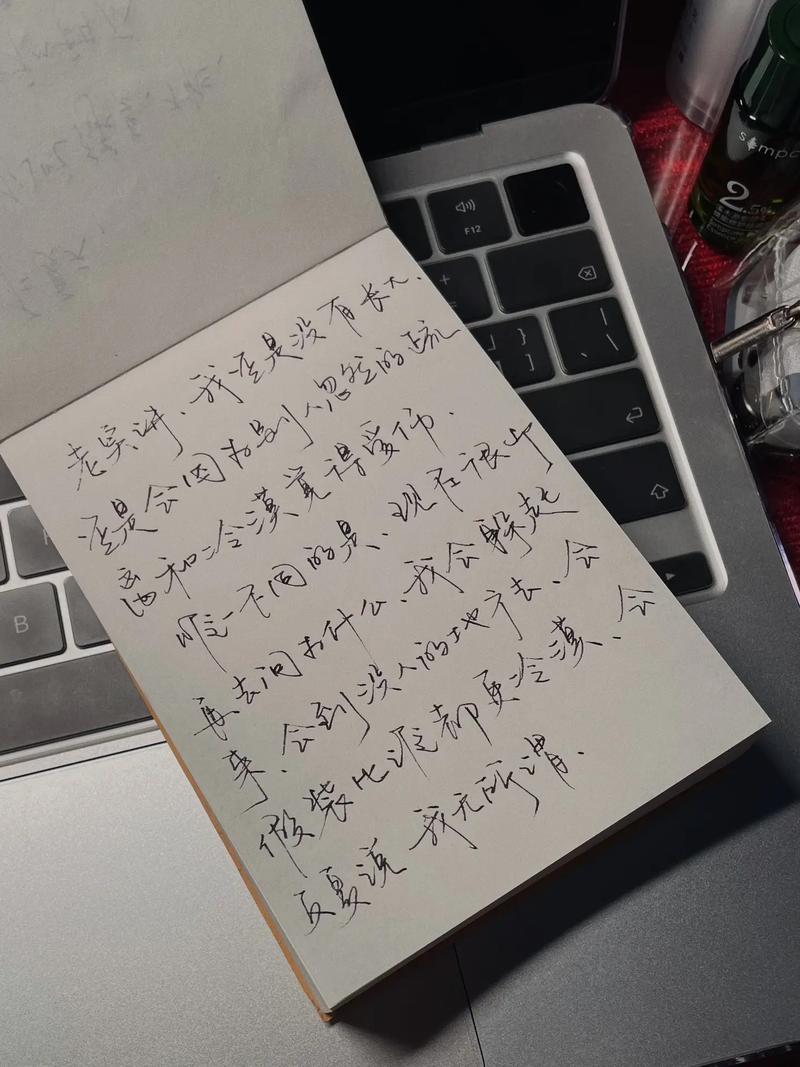 老实讲、我还是没有长大.
还是会因为别人忽然的疏
离和冷漠觉得受伤.
唯一不同的是、现在很少
再去问为什么、我会躲起
来、会到没人的地方去、会
假装比谁都更冷漠、会
反复说 我无所谓.
F12
B
2.5%